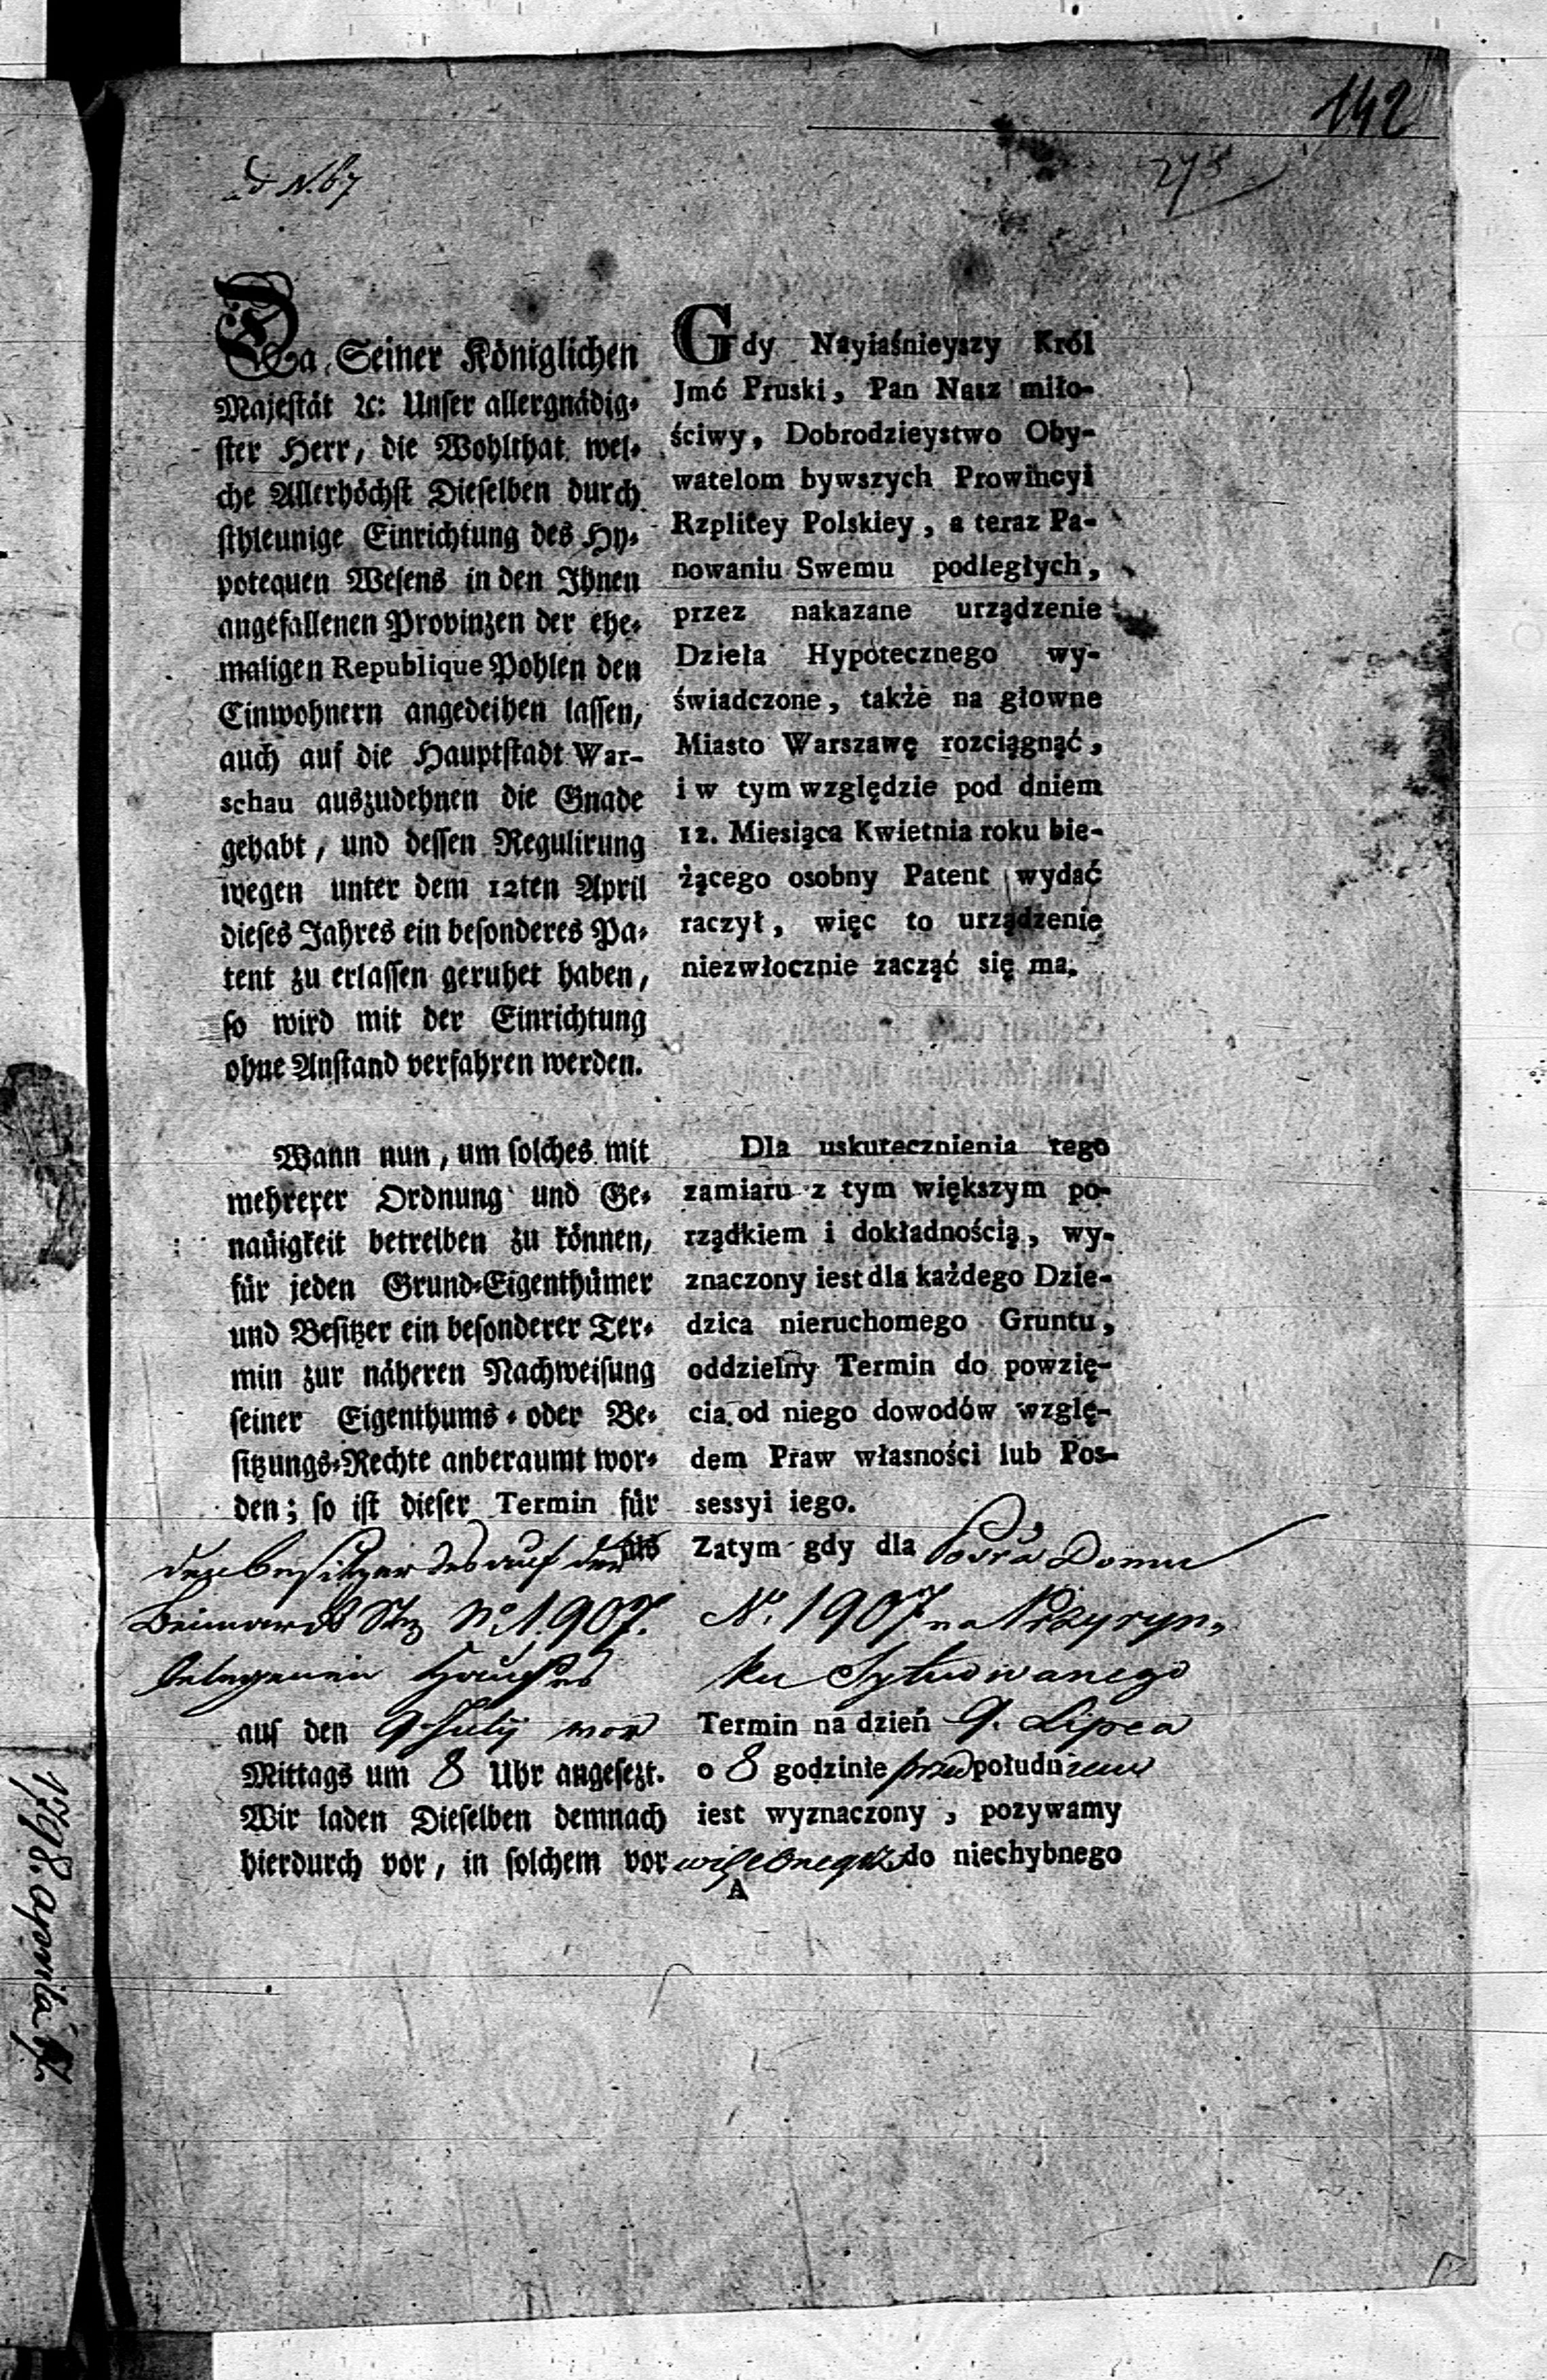 142
ad N. 67
275
Da Seiner Königlichen
Majestät ꝛc: Unser allergnädig-
ster Herr, die Wohlthat wel-
che Allerhöchst Dieselben durch
schleunige Einrichtung des Hy-
potequen Wesens in den Ihnen
angefallenen Provinzen der ehe-
maligen Republique Pohlen den
Einwohnern angedeihen lassen,
auch auf die Hauptstadt War-
schau auszudehnen die Gnade
gehabt, und dessen Regulirung
wegen unter dem 12ten April
dieses Jahres ein besonderes Pa-
tent zu erlassen geruhet haben,
so wird mit der Einrichtung
ohne Anstand verfahren werden.
Wann nun, um solches mit
mehrerer Ordnung und Ge-
nauigkeit betreiben zu können,
für jeden Grund-Eigenthümer
und Besitzer ein besonderer Ter-
min zur näheren Nachweisung
seiner Eigenthums- oder Be-
sitzungs-Rechte anberaumt wor-
den; so ist dieser Termin für
den Besitzer des auf der
Str No 1907.
belegenen Hauses
auf den 9 July vor
Mittags um 8 Uhr angesezt.
Wir laden Dieselben demnach
hierdurch vor, in solchem vor
Gdy Nayiaśnieyszy Król
Jmć Pruski, Pan Nasz miło-
ściwy, Dobrodzieystwo Oby-
watelom bywszych Prowincyi
Rzplitey Polskiey, a teraz Pa-
nowaniu Swemu podległych,
przez nakazane urządzenie
Dzieła Hypotecznego wy-
świadczone, także na głowne
Miasto Warszawę rozciągnąć,
i w tym względzie pod dniem
12. Miesiąca Kwietnia roku bie-
żącego osobny Patent wydać
raczył, więc to urządzenie
niezwłocznie zacząć się ma.
Dla uskutecznienia tego
zamiaru z tym większym po-
rządkiem i dokładnością, wy-
znaczony iest dla każdego Dzie-
dzica nieruchomego Gruntu,
oddzielny Termin do powzię-
cia od niego dowodów wzglę-
dem Praw własności lub Pos-
sessyi iego.
Zatym gdy dla Possra Domu
No. 1907 na Przyryn-
ku Sytuowanego
Termin na dzień 9. Lipca
o 8 godzinie przed południem
iest wyznaczony, pozywamy
do niechybnego
A
1798.